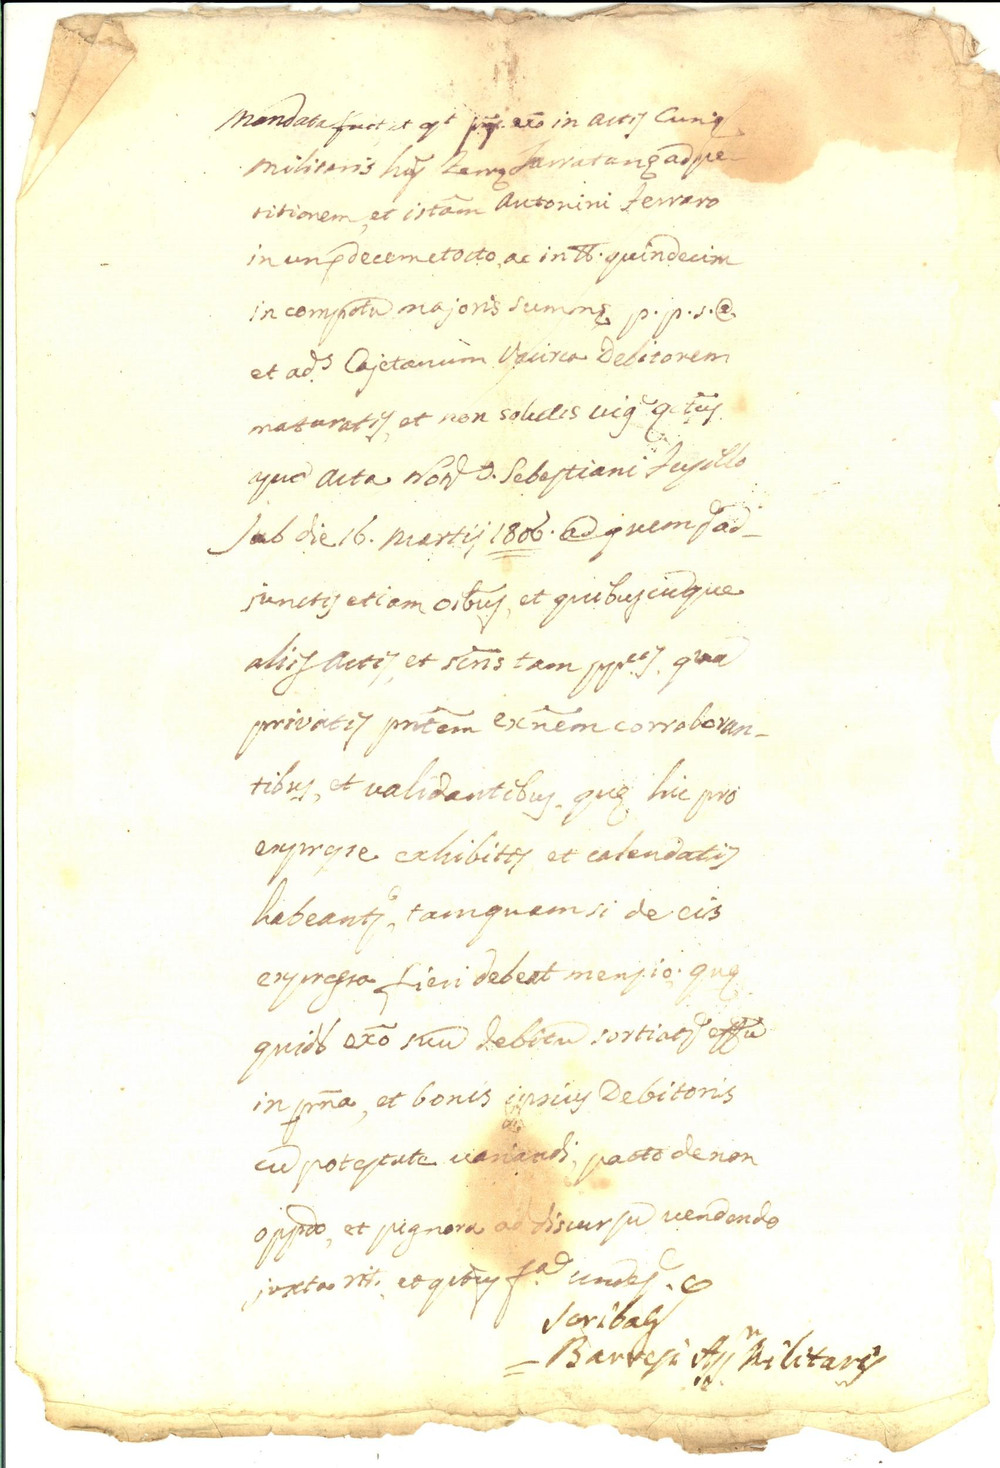 Mandata fuit et est pns. exõ in actis Curię
Militaris huj̃ Terrę Jarratanę ad pe-
titionem, et istãm Antonini Ferraro
in unc. decemetocto, ac in tt. quindecim
in compotũ majoris summę p. p. s. @
et ad.s Cajetanum Debitorem
maturatis, et non solutis vig.
quo acta Not. D. Sebastiani
Sub die 16. Martij 1806. ad quem sad-
junctis etiam oibus, et quibuscũque
aliis Actis, et scris tam pp.cis. qua
privatis pntem exñem corroboran-
tibus, et validantibus. quę hic pro
expresse exhibitis et calendatis
habeantr, tamquam si de eis
expressa fieri debeat mensio. quę
quidẽ exõ suũ debitũ sortiatr effũ
in pña, et bonis ipsius Debitoris
cũ potestate variandi, pacto de non
oppdo, et pignora ad discursũ vendendo
juxta rit. et
Scribas
= Barresi Ass. Militaris